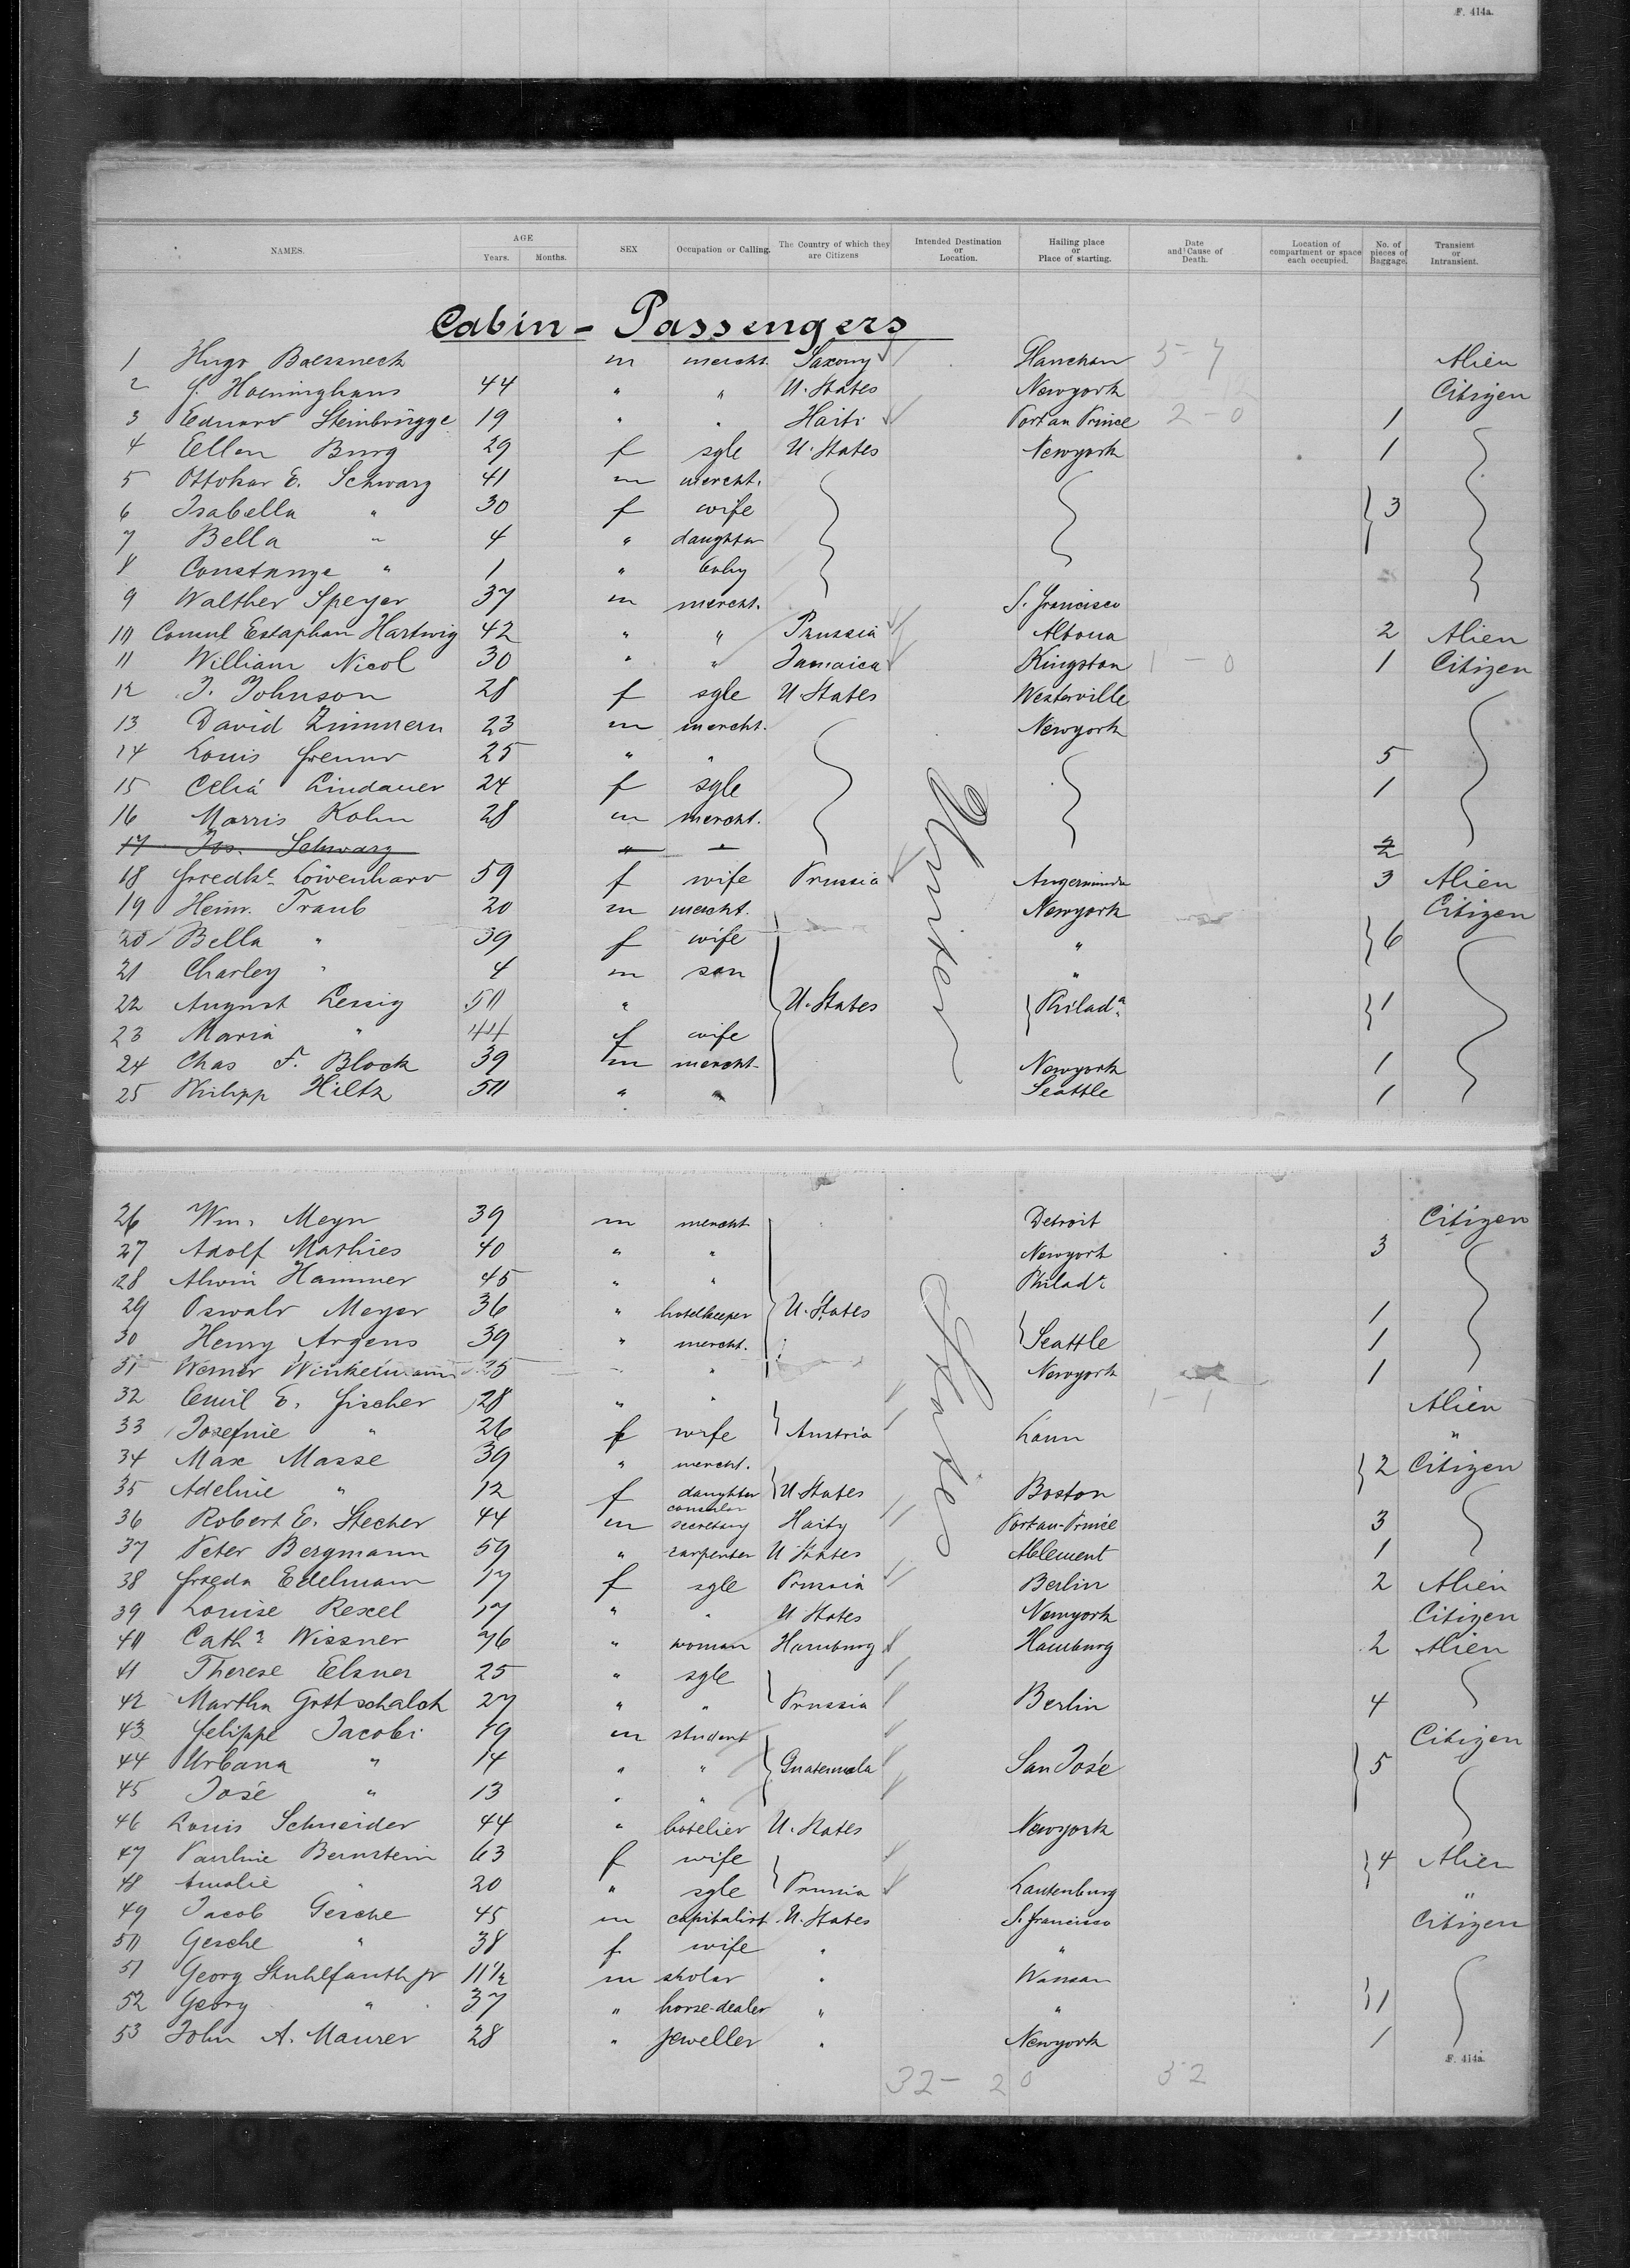 F. 414a.
NAMES. AGE SEX Occupation or Calling. The Country of which they are Citizens Intended Destination or Location. Hailing place or Place of starting. Date and Cause of Death. Location of compartment or space each occupied. No. of pieces of Baggage. Transient or Intransient.
Years. Months.
Cabin - Passengers
1 Hugo Baessneck m mercht. Saxony 5-7 Alien
2 Hoeninghaus 44 " " U. States Newyork Citizen
3 Eduard Steinbrügge 19 " " Haiti Port au Prince 2-0 1
4 Ellen Burg 29 f sgle U. States Newyork 1
5 Ottokar E. Schwarz 41 m mercht.
6 Isabella " 30 f wife 3
7 Bella " 4 " daughter
8 Constanze " 1 " baby
9 Walther Speyer 37 m mercht. S. Francisco
10 Consul Estaphan Hartwig 42 " " Prussia Altona 2 Alien
11 William Nicol 30 " " Jamaica Kingston 1-0 1 Citizen
12 J. Johnson 28 f sgle U. States Westerville
13 David Zimmern 23 m mercht. Newyork
14 Louis Freund 25 " " 5
15 Celia Lindauer 24 f sgle 1
16 Morris Kohn 28 m mercht.
17 Jos. Schwarz " " 2
18 Friedke. Löwenhard 59 f wife Prussia Angermünde 3 Alien
19 Heinr. Traub 20 m mercht. Newyork Citizen
20 Bella " 39 f wife " 6
21 Charley " 4 m son "
22 August Lessig 50 " U. States Philada. 1
23 Maria " 44 f wife
24 Chas F. Block 39 m mercht. Newyork 1
25 Philipp Hiltz 50 " " Seattle 1
26 Wm. Meyn 39 m mercht Detroit Citizen
27 Adolf Mathies 40 " " Newyork 3
28 Alwin Hammer 45 " " Philada.
29 Oswald Meyer 36 " hotelkeeper U. States 1
30 Henry Argens 39 " mercht. Seattle 1
31 Werner Winkelmann 35 " " Newyork 1
32 Emil E. Fischer 28 " " 1-1 Alien
33 Josefine " 26 f wife Austria Laun "
34 Max Masse 39 " mercht. 2 Citizen
35 Adeline " 12 f daughter U. States Boston
36 Robert E. Stecher 44 m consular secretary Haity Port au-Prince 3
37 Peter Bergmann 59 " carpenter U States 1
38 Frieda Edelmann 17 f sgle Prussia Berlin 2 Alien
39 Louise Rexel 17 " " U States Newyork Citizen
40 Cath. Wissner 76 " woman Hamburg Hamburg 2 Alien
41 Therese Elsner 25 " sgle
42 Martha Gottschalch 27 " " Prussia Berlin 4
43 Felippe Jacobi 19 m student Citizen
44 Urbana " 14 " " Guatemala San José 5
45 José " 13 " "
46 Louis Schneider 44 " hotelier U. States Newyork
47 Pauline Bernstein 63 f wife 4 Alien
48 Amalie " 20 " sgle Prussia Lautenburg "
49 Jacob Gesche 45 m capitalist U. States S. Francisco Citizen
50 Gesche " 38 f wife " "
51 Georg Stuhlfauth jr 11½ m skolar " Wausau
52 Georg " 37 " horse-dealer " " 1
53 John A. Maurer 28 " jeweller " Newyork 1
32- 20 32
F. 414a.